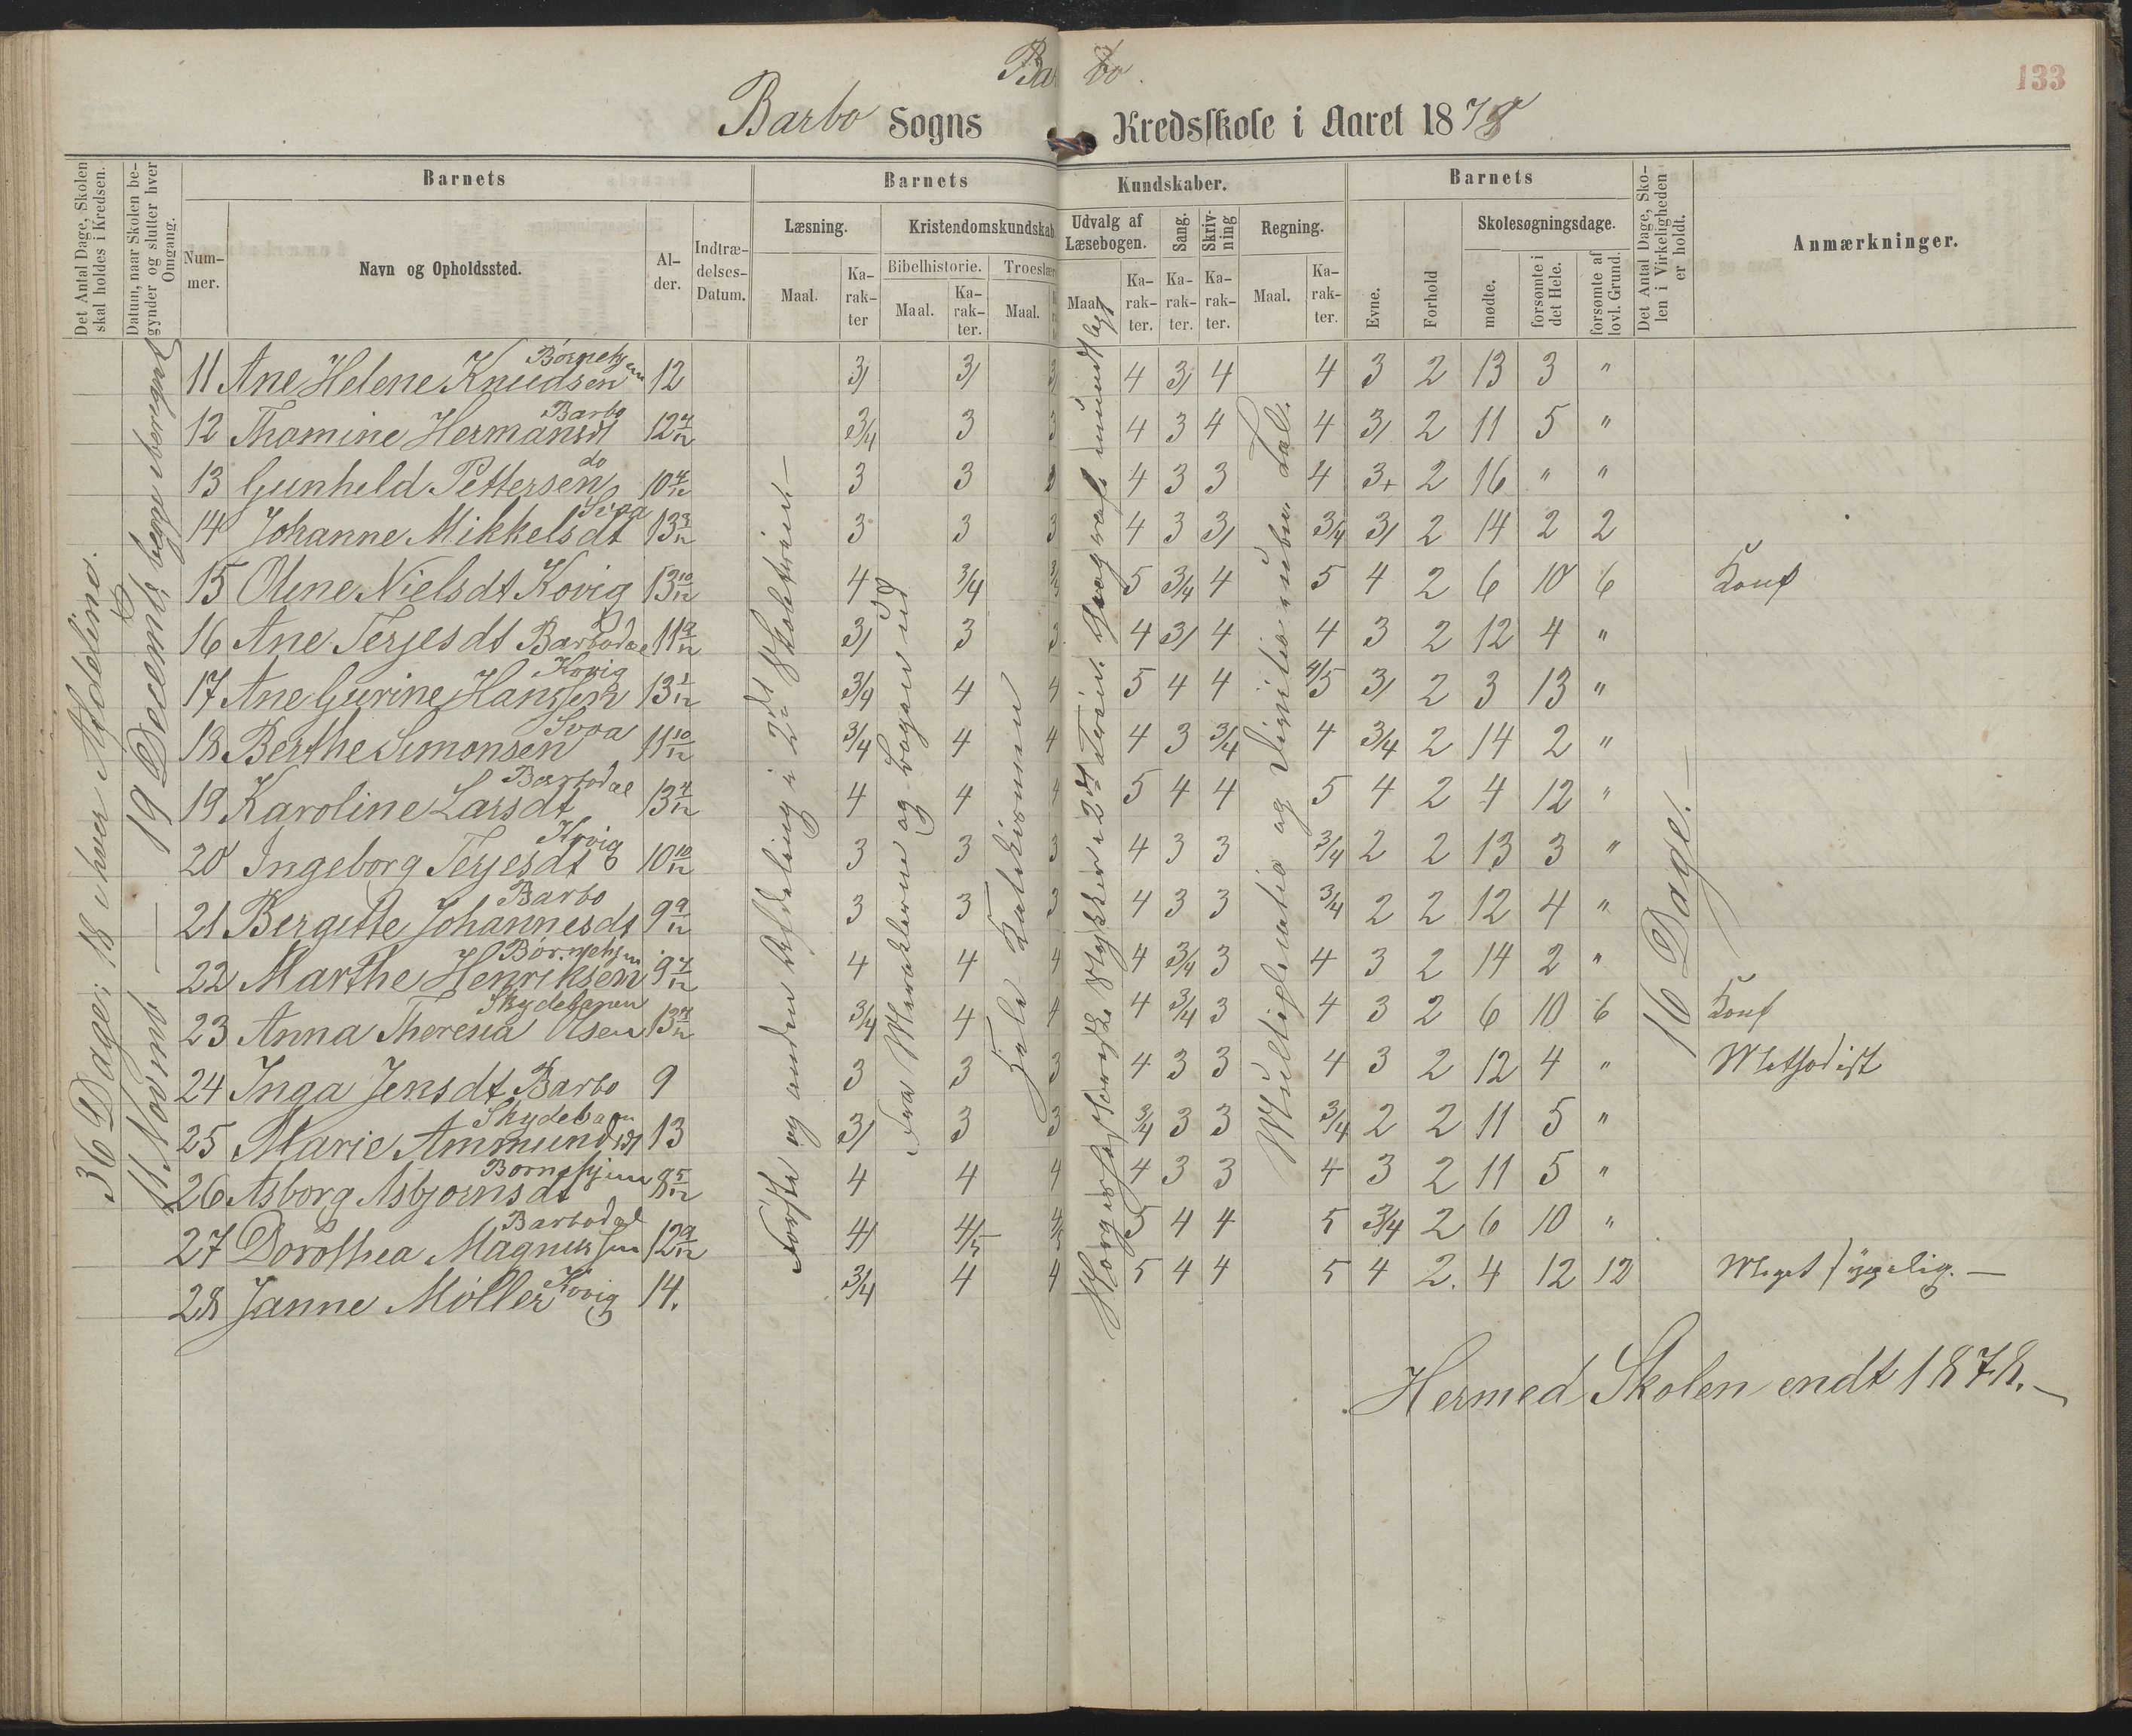 133
Barbo
Barbo Sogns Kredsskole i Aaret 1878
Det Antal Dage, Skolen skal holdes i Kredsen.
Datum, naar Skolen begynder og slutter hver Omgang.
Barnets
Nummer.
Navn og Opholdssted.
Alder.
Indtrædelses-Datum.
Barnets Kundskaber.
Læsning.
Maal.
Karakter
Kristendomskundskab
Bibelhistorie.
Maal.
Karakter.
Troeslær
Maal.
Udvalg af Læsebogen.
Maal.
Karakter.
Sang.
Karakter.
Skrivning
Karakter.
Regning.
Maal.
Karakter.
Barnets
Evne.
Forhold
Skolesøgningsdage.
mødte.
forsømte i det Hele.
forsømte af lovl. Grund.
Det Antal Dage, Skolen i Virkeligheden er holdt.
Anmærkninger.
36 Dage: 18 i hver Afdeling.
11 Novemb — 19 Decemb, begge iberegnet
Første og anden Afdeling i 2det Skoletrin. —
Fra Miraklerne og Bogen ud
Hele Katekismen
Norgeshistoriske Stykker i 2det Trin. Geografi mundtlegt
Multiplikation og Division ubn. Tal.
16 Dage. —
11 Ane Helene Knudsen Børnehjem 12 3/ 3/ 3/ 4 3/ 4 4 3 2 13 3 "
12 Thomine Hermansdt Barbo 12 4/12 3/4 3 3 4 3 4 4 3/ 2 11 5 "
13 Gunhild Pettersen do 10 4/12 3 3 3 4 3 3 4 3+ 2 16 " "
14 Johanne Mikkelsdt Svaa 13 3/12 3 3 3 4 3 3/ 3/4 3/ 2 14 2 2
15 Oline Nielsdt Kovig 13 10/12 4 3/4 3/4 5 3/4 4 5 4 2 6 10 6 Konf
16 Ane Terjesdt Barbodal 11 9/12 3/ 3 3 4 3/ 4 4 3 2 12 4 "
17 Ane Gurine Hanssen Kovig 13 1/12 3/4 4 4 5 4 4 4/5 3/ 2 3 13 "
18 Berthe Simonsen Svaa 11 10/12 3/4 4 4 4 3 3/4 4 3/4 2 14 2 "
19 Karoline Larsdt Barbodal 13 4/12 4 4 4 5 4 4 5 4 2 4 12 "
20 Ingeborg Terjesdt Kovig 10 10/12 3 3 3 4 3 3 3/4 2 2 13 3 "
21 Bergitte Johannesdt Barbo 9 9/12 3 3 3 4 3 3 3/4 2 2 12 4 "
22 Marthe Henriksen Børnehjem 9 7/12 4 4 4 4 3/4 3 4 3 2 14 2 "
23 Anna Theresia Olsen Skydebanen 13 4/12 3/4 4 4 4 3/4 3 4 3 2 6 10 6 Konf
24 Inga Jensdt Barbo 9 3 3 3 4 3 3 4 3 2 12 4 " Methodist
25 Marie Ammundsdt Skydebanen 13 3/ 3 3 3/4 3 3 3/4 2 2 11 5 "
26 Asborg Asbjørnsdt Børnehjem 8 5/12 4 4 4 4 3 3 4 3 2 11 5 "
27 Dorothea Magnussen Barbodal 12 9/12 4/ 4/5 4/5 5 4 4 5 3/4 2 6 10 "
28 Janne Møller Kovig 14. 3/4 4 4 5 4 4 5 4 2. 4 12 12 Meget sygelig. —
Hermed Skolen endt 1878. —